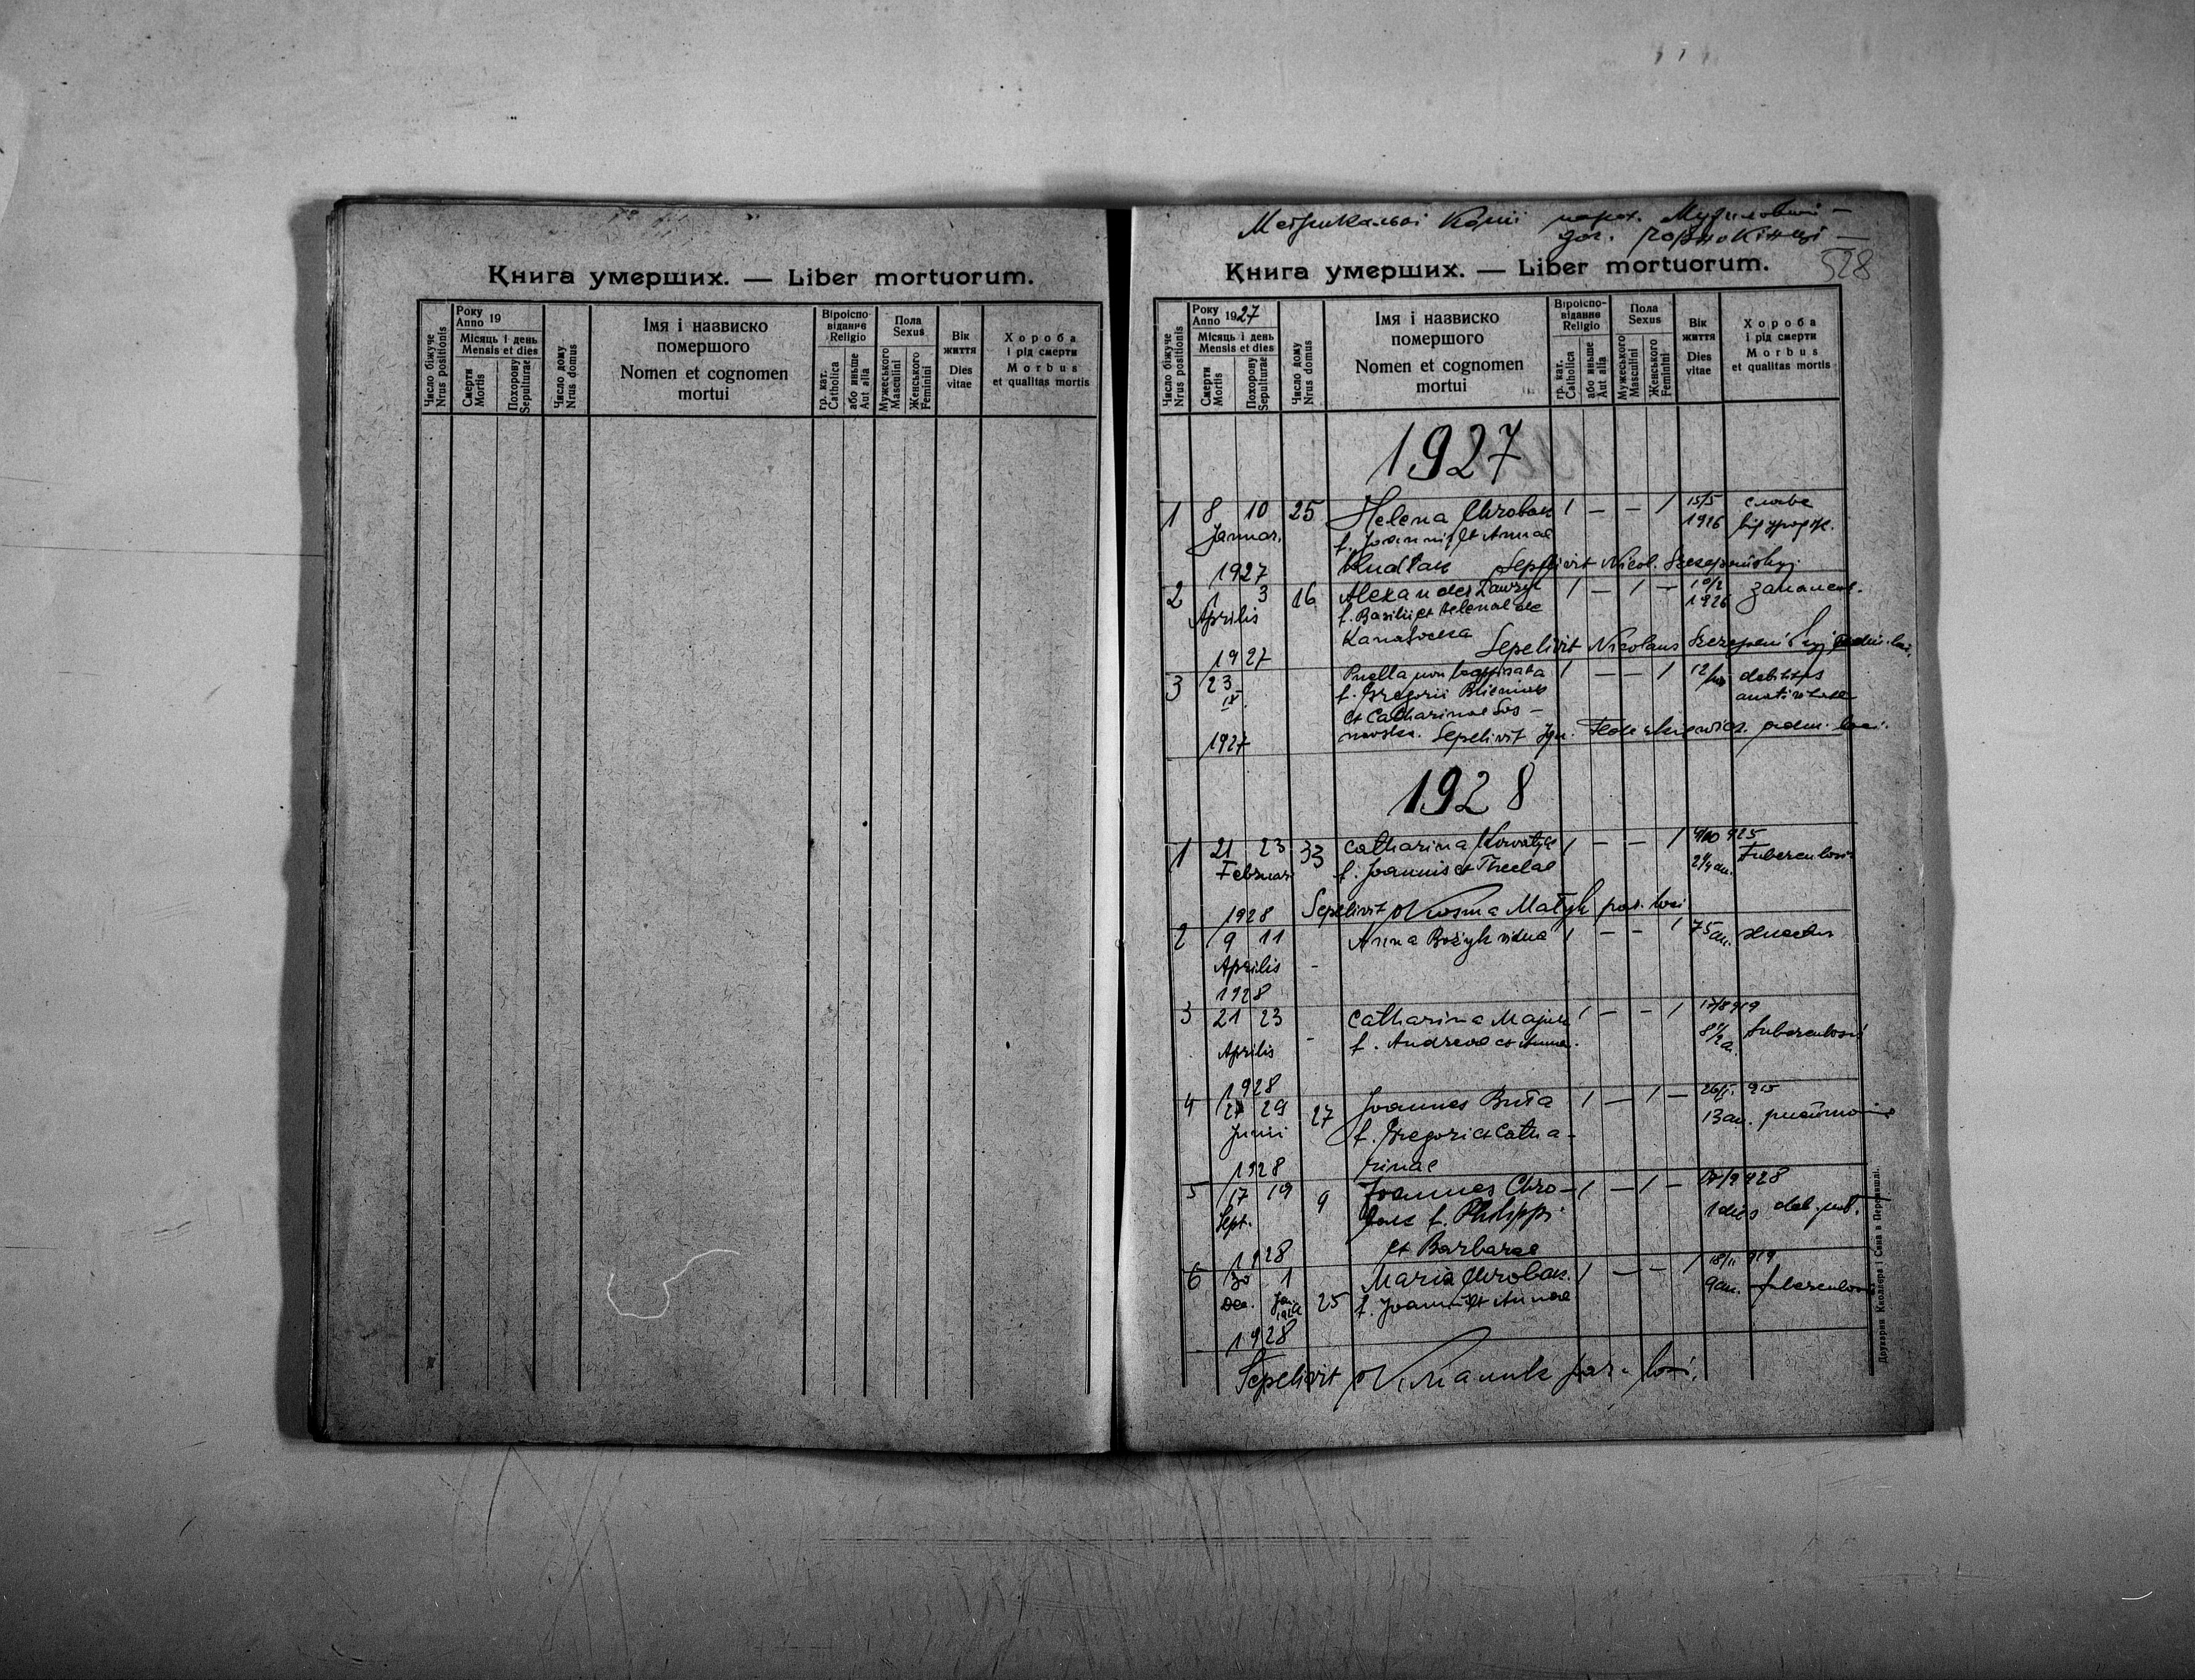 Книга умерших. — Liber mortuorum.
Число біжуче
Nrus positionis
Року
Anno 19
Місяць і день
Mensis et dies
Смерти
Mortis
Похорону
Sepulturae
Число дому
Nrus domus
Імя і назвиско
помершого
Nomen et cognomen
mortui
Віроіспо
відание
Religio
гр. кат.
Catholica
або иньше
Aut alia
Пола
Sexus
Мужеського
Masculini
Женського
Feminini
Вік
життя
Dies
vitae
Хороба
і рід смерти
Morbus
et qualitas mortis
Метрикальні Копії парох.
528
Книга умерших. — Liber mortuorum.
Число біжуче
Nrus positionis
Року
Anno 1927
Місяць і день
Mensis et dies
Смерти
Mortis
Похорону
Sepulturae
Число дому
Nrus domus
Імя і назвиско
помершого
Nomen et cognomen
mortui
Віроіспо-
відание
Religio
гр. кат.
Catholica
або иньше
Aut alia
Пола
Sexus
Мужеського
Masculini
Женського
Feminini
Вік
життя
Dies
vitae
Хороба
і рід смерти
Morbus
et qualitas mortis
1927
1 8 10 25 Helena Chrobak 1 — — 1 15/5
Januar. f. Joannis et Annae 1926
1927 Kudłak Sepelivit Nicol.
2 1 3 16 Alexander 1 — 1 — 1926
Aprilis f. Basilii et Helenae de
1927 Sepelivit Nicolaus
3 23 Puella non 1 — — 1 debilitas
IX. f. Gregorii
et Catharinae Sos-
1927 novska. Sepelivit Ign. adm. loci.
1928
1 21 23 33 Catharina 1 — — 1 9/10 925
Februar. f. Joannis et Theclae 2 1/4 an. Tuberculosis
1928 Sepelivit Kosma Matyk par. loci
2 9 11 Anna Bożyk vidua 1 — — 1 75 an.
Aprilis -
1928
3 21 23 Catharina 1 — — 1 17/8 919
Aprilis - f. Andreae et Annae. 8 1/2 a. tuberculosis
1928
4 27 29 27 Joannes Buła 1 — 1 — 915
Junii f. Gregorii et Catha- 13 an. pneumonia
1928 rinae
5 17 19 9 Joannes Chro- 1 — 1 — 928
Sept. bak f. Philippi 1 dies deb.
1928 et Barbarae
6 30 1 25 Maria Chrobak. 1 — — 1 18/11 919
Dec. Jan. f. Joannis et Annae 9 an. tuberculosis
1928
Sepelivit par. loci.
Друкарня Кноллєра і Сина в Перемишлі.